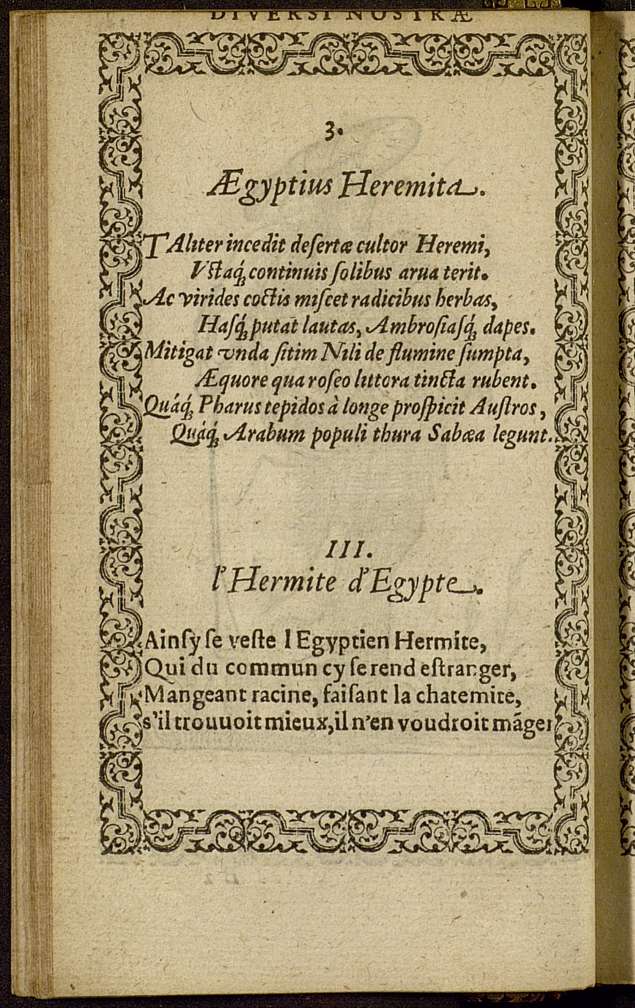 DIVERSI NOSTRÆ
3.
Ægyptius Heremita.
TAliter incedit desertæ cultor Heremi,
Vstaq́; continuis solibus arua terit.
Ac virides coctis miscet radicibus herbas,
Hasq́; putat lautas, Ambrosiasq́; dapes.
Mitigat vnda sitim Nili de flumine sumpta,
Æquore qua roseo littora tincta rubent.
Quáq́; Pharus tepidos à longe prospicit Austros,
Quáq́; Arabum populi thura Sabæa legunt.
III.
l'Hermite d'Egypte.
Ainsy se veste l Egyptien Hermite,
Qui du commun cy se rend estranger,
Mangeant racine, faisant la chatemite,
s'il trouuoit mieux, il n'en voudroit mãger